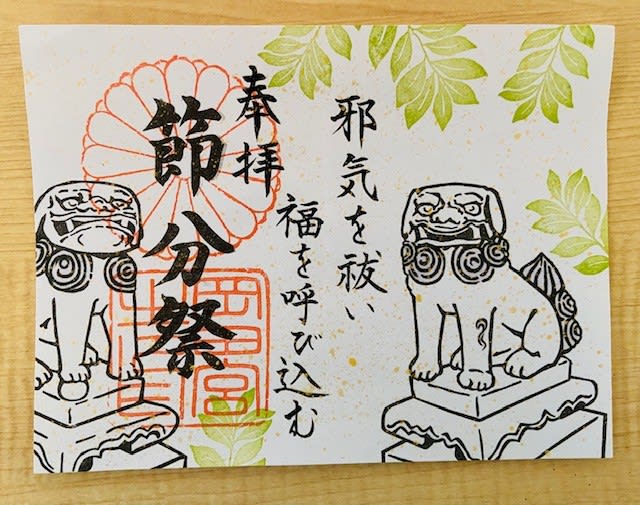 邪気を祓い
福を呼び込む
奉拝
節分祭
岡田宮